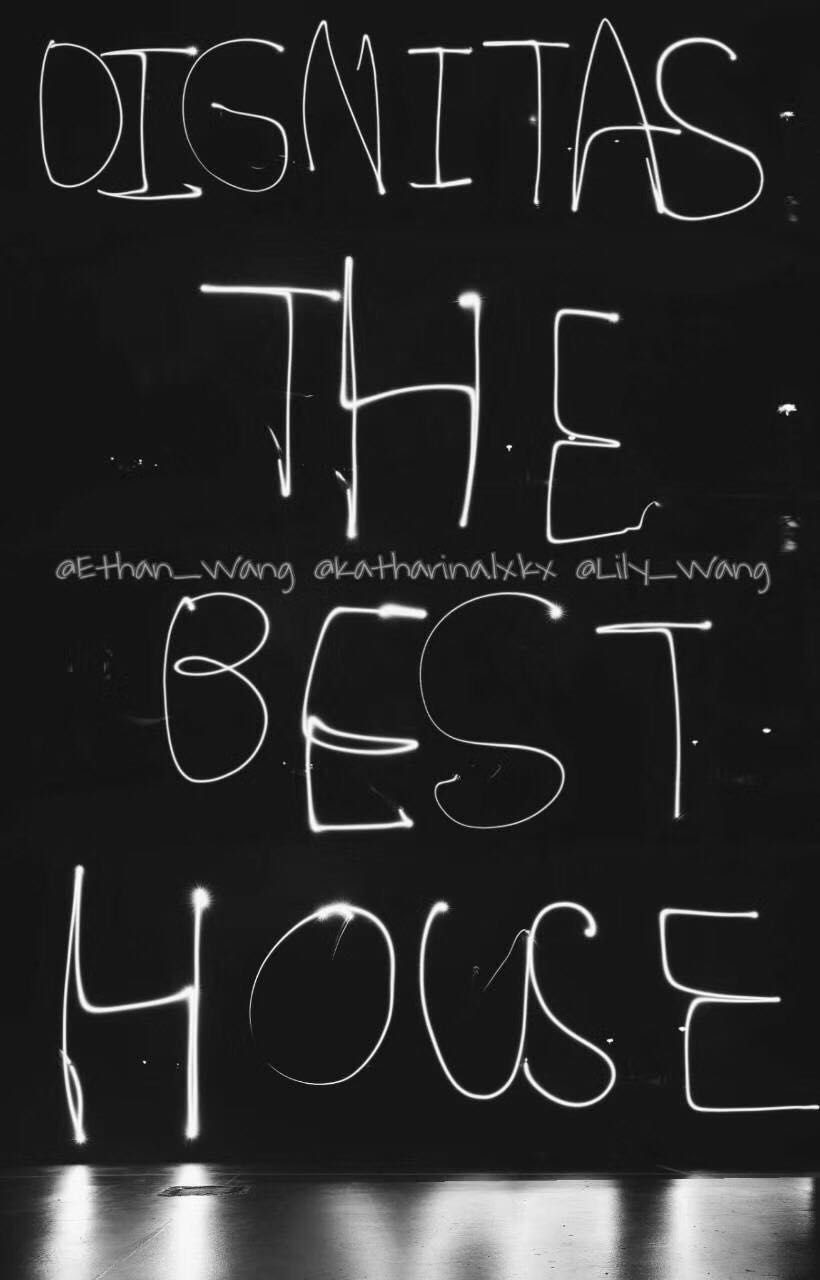 DIGNITAS
THE
@Ethan_Wang @katharinalxkx @Lily_Wang
BEST
HOUSE